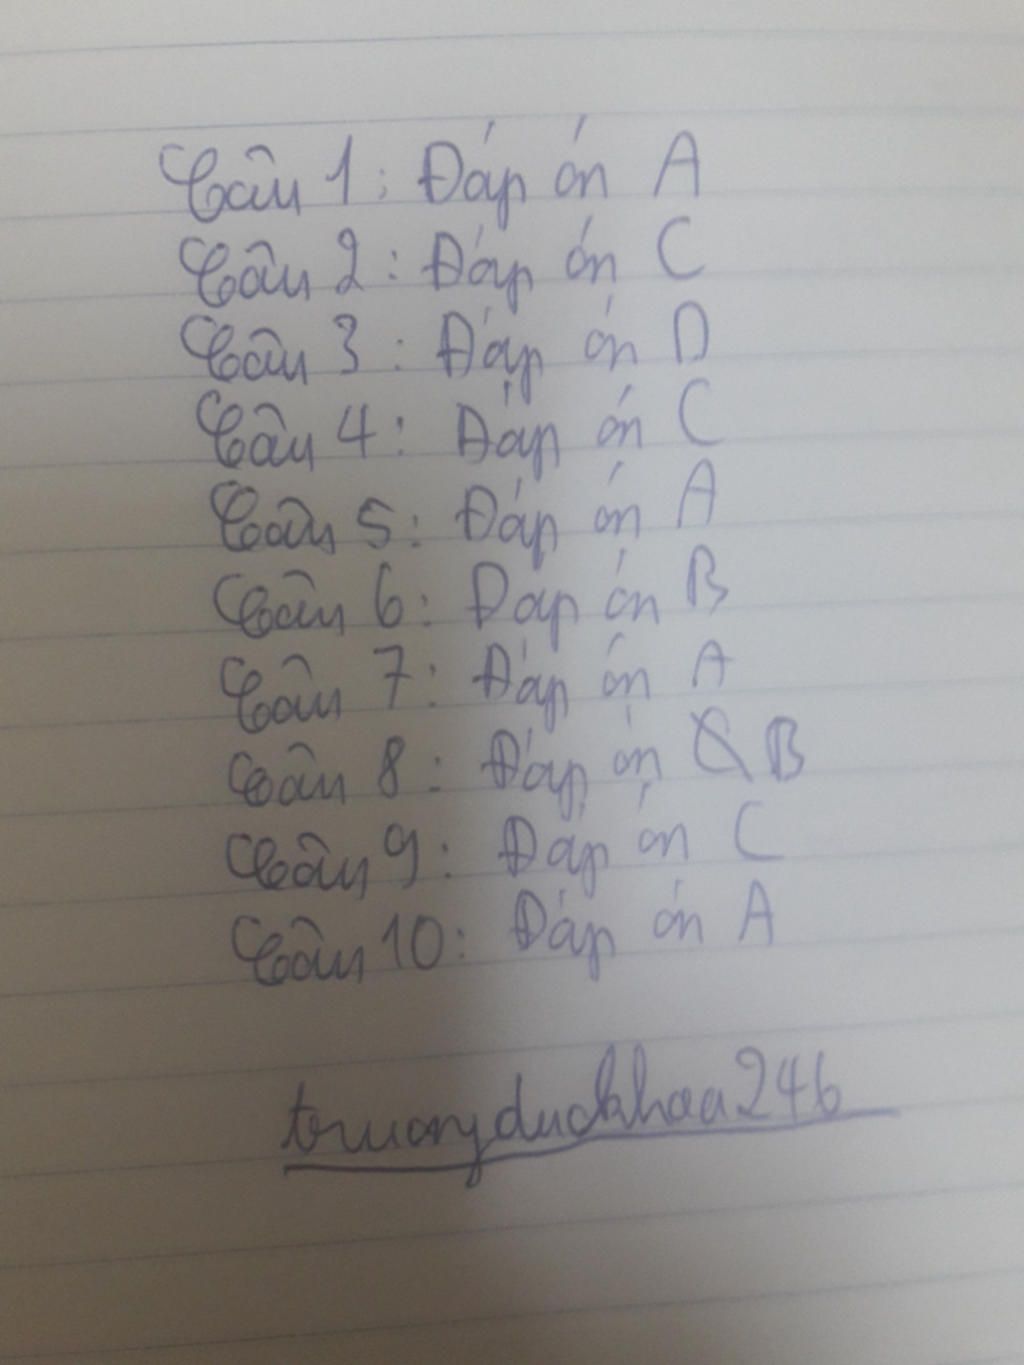 Câu 1: Đáp án A
Câu 2: Đáp án C
Câu 3: Đáp án D
Câu 4: Đáp án C
Câu 5: Đáp án A
Câu 6: Đáp án B
Câu 7: Đáp án A
Câu 8: Đáp án B
Câu 9: Đáp án C
Câu 10: Đáp án A
truongduckhoa246